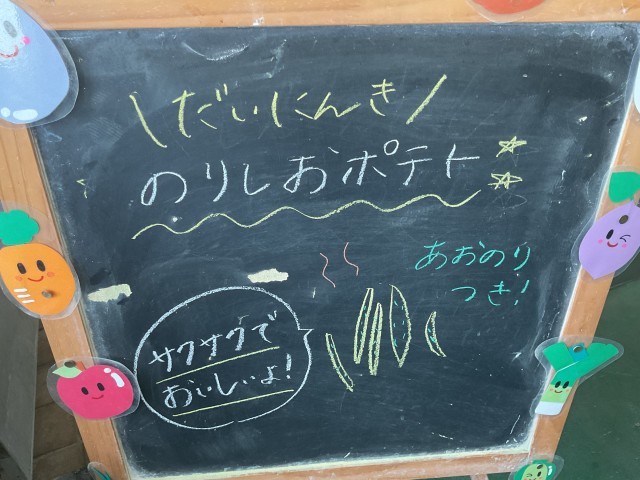 \だいにんき/
のりしおポテト
あおのり
つき!
サクサクで
おいしいよ!